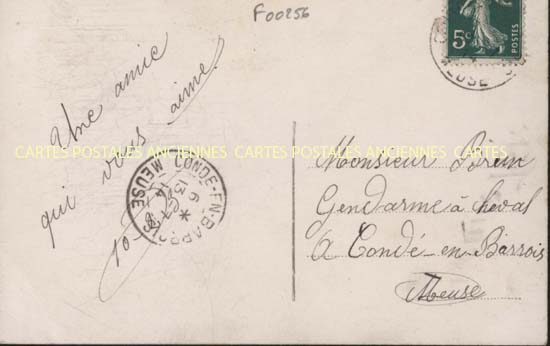 F00256
5c
POSTES
MEUSE
Une amie
qui vous aime
10-
CONDÉ-EN-BARROIS
13
6
MEUSE
CARTES POSTALES ANCIENNES CARTES POSTALES ANCIENNES CARTES POSTALES ANCIENNES
Monsieur
Gendarme à cheval
à Condé-en-Barrois
Meuse